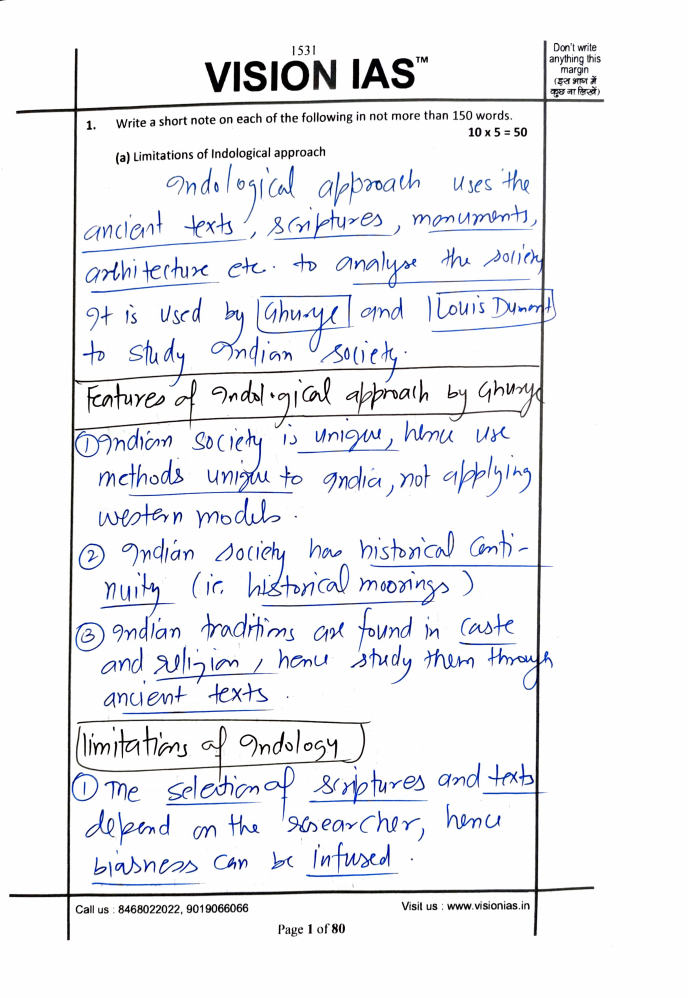 1531
VISION IAS™
Don't write
anything this
margin
(इस भाग में
कुछ ना लिखें)
1. Write a short note on each of the following in not more than 150 words.
10 x 5 = 50
(a) Limitations of Indological approach
Indological approach uses the
ancient texts, scriptures, monuments,
architecture etc. to analyse the society
It is used by Ghurye and Louis Dumont
to study Indian society.
Features of Indological approach by Ghurye
① Indian society is unique, hence use
methods unique to India, not applying
western models.
② Indian society has historical conti-
nuity (ie. historical moorings)
③ Indian traditions are found in caste
and religion, hence study them through
ancient texts.
limitations of Indology
① The selection of scriptures and texts
depend on the researcher, hence
biasness can be infused.
Call us : 8468022022, 9019066066
Visit us : www.visionias.in
Page 1 of 80